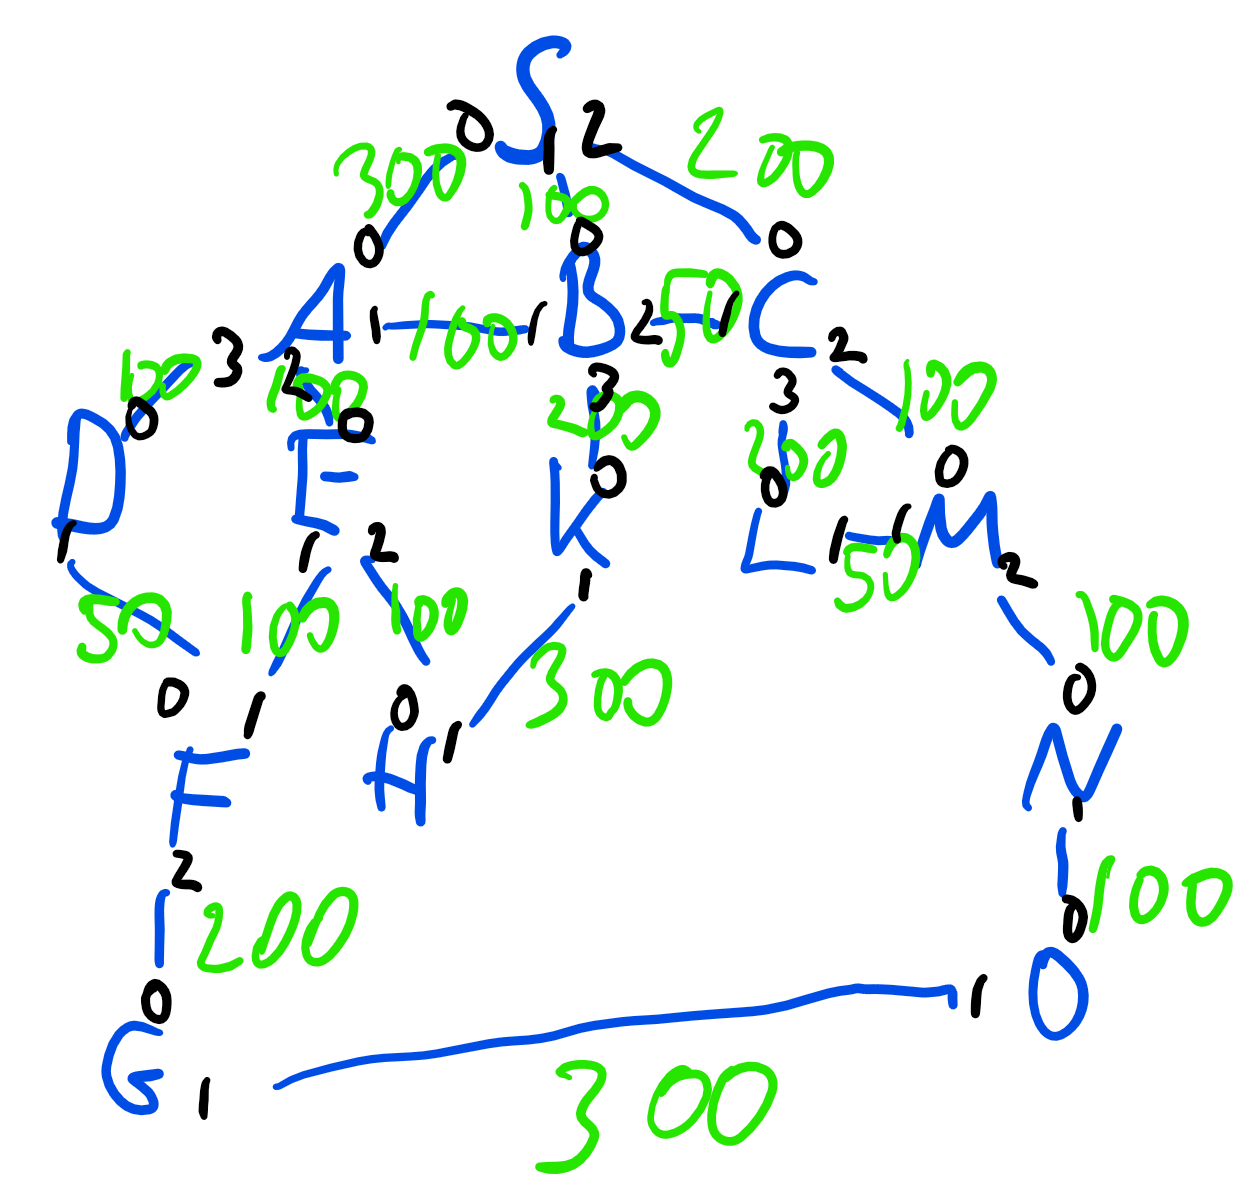 S
0 1 2
300 100 200
0 0 0
A 1 100 1 B 2 50 1 C
3 2 3 3 2
100 100 200 200 100
0 0 0 0 0
D E K L 1 50 1 M
1 1 2 1 2
50 100 100 300 100
0 1 0 1 0
F H N
2 1
200 100
0 0
G 1 300 1 O